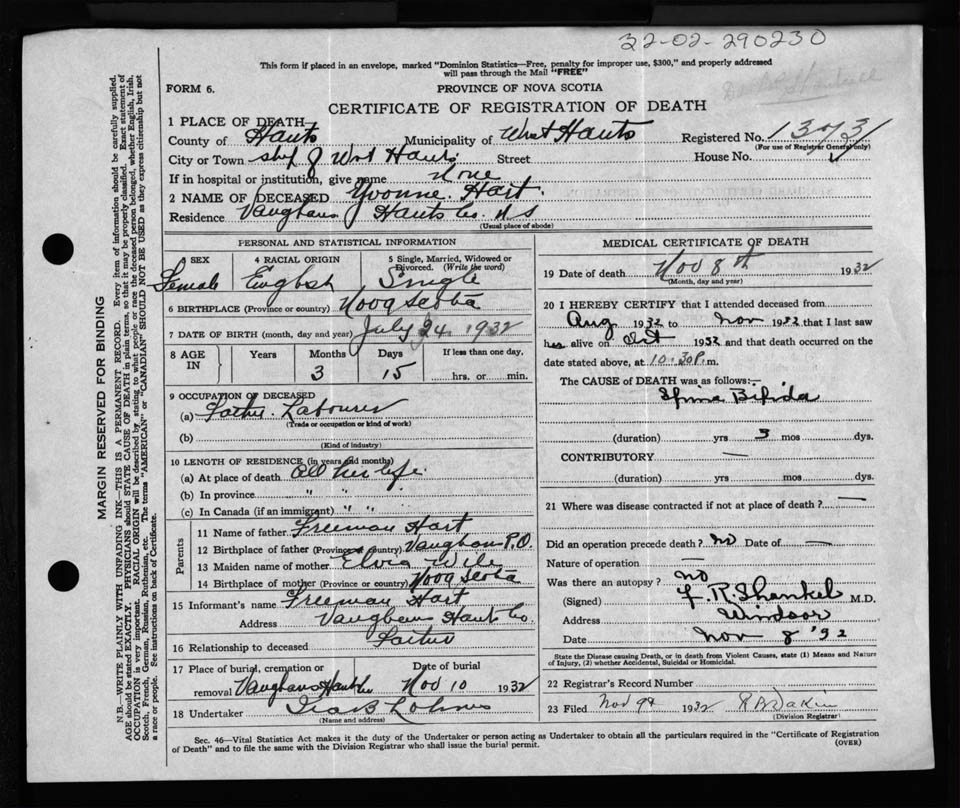 32-02-290230
This form if placed in an envelope, marked "Dominion Statistics—Free, penalty for improper use, $300," and properly addressed
will pass through the Mail "FREE"
FORM 6.
PROVINCE OF NOVA SCOTIA
CERTIFICATE OF REGISTRATION OF DEATH
1 PLACE OF DEATH
County of Hants Municipality of West Hants Registered No.
(For use of Registrar General only)
City or Town of West Hants Street House No.
If in hospital or institution, give name None
2 NAME OF DECEASED Yvonne Hart.
Residence Vaughans Hants Co. N S
(Usual place of abode)
PERSONAL AND STATISTICAL INFORMATION
3 SEX 4 RACIAL ORIGIN 5 Single, Married, Widowed or
Divorced. (Write the word)
Female English Single
6 BIRTHPLACE (Province or country) Nova Scotia
7 DATE OF BIRTH (month, day and year) July 24 1932
8 AGE IN Years Months Days If less than one day,
3 15 hrs. or min.
9 OCCUPATION OF DECEASED
(a) Labourer
(Trade or occupation or kind of work)
(b)
(Kind of industry)
10 LENGTH OF RESIDENCE (in years and months)
(a) At place of death All her life.
(b) In province " "
(c) In Canada (if an immigrant) " "
Parents
11 Name of father Freeman Hart
12 Birthplace of father (Province or country) Vaughan P.O.
13 Maiden name of mother Wile
14 Birthplace of mother (Province or country) Nova Scotia
15 Informant's name Freeman Hart
Address Vaughans Hants Co.
16 Relationship to deceased Father
17 Place of burial, cremation or Date of burial
removal Vaughans Hants Co Nov 10 1932
18 Undertaker
(Name and address)
MEDICAL CERTIFICATE OF DEATH
19 Date of death Nov 8th 1932
(Month, day and year)
20 I HEREBY CERTIFY that I attended deceased from
Aug 1932 to Nov 1932 that I last saw
her alive on Oct 1932 and that death occurred on the
date stated above, at 10.30 P. m.
The CAUSE OF DEATH was as follows:—
Spina Bifida
(duration) yrs 3 mos dys.
CONTRIBUTORY —
(duration) yrs mos dys.
21 Where was disease contracted if not at place of death? —
Did an operation precede death? no Date of —
Nature of operation —
Was there an autopsy? no
(Signed) F. R. Shankel M.D.
Address Windsor
Date Nov 8 '32
State the Disease causing Death, or in death from Violent Causes, state (1) Means and Nature
of Injury, (2) whether Accidental, Suicidal or Homicidal.
22 Registrar's Record Number
23 Filed Nov 9th 1932
(Division Registrar)
Sec. 46—Vital Statistics Act makes it the duty of the Undertaker or person acting as Undertaker to obtain all the particulars required in the "Certificate of Registration
of Death" and to file the same with the Division Registrar who shall issue the burial permit.
(OVER)
MARGIN RESERVED FOR BINDING
N.B.—WRITE PLAINLY WITH UNFADING INK—THIS IS A PERMANENT RECORD. Every item of information should be carefully supplied.
AGE should be stated EXACTLY. PHYSICIANS should STATE CAUSE OF DEATH in plain terms, so that it may be properly classified. Exact statement of
OCCUPATION is very important. RACIAL ORIGIN will be described by stating to what people or race the deceased person belonged, whether English, Irish,
Scotch, French, German, Russian, Ruthenian, etc. The terms "AMERICAN" or "CANADIAN" SHOULD NOT BE USED as they express citizenship but not
a race or people. See instructions on back of Certificate.